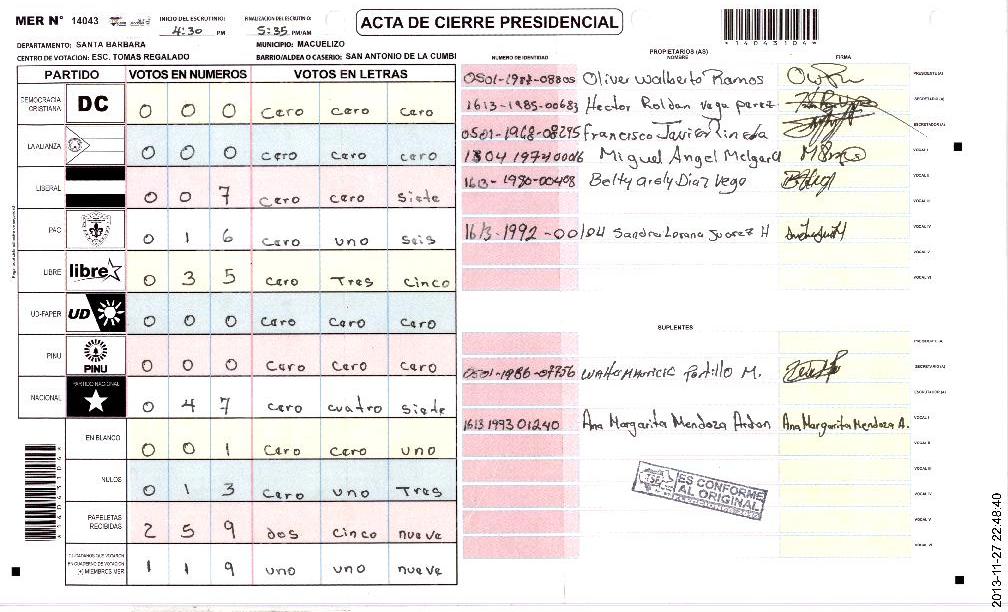 MER N° 14043
INICIO DEL ESCRUTINIO: 4:30 PM
FINALIZACION DEL ESCRUTINIO: 5:35 PM/AM
ACTA DE CIERRE PRESIDENCIAL
*14043104*
DEPARTAMENTO: SANTA BARBARA
MUNICIPIO: MACUELIZO
CENTRO DE VOTACION: ESC. TOMAS REGALADO
BARRIO/ALDEA O CASERIO: SAN ANTONIO DE LA CUMBI
PARTIDO VOTOS EN NUMEROS VOTOS EN LETRAS
DEMOCRACIA CRISTIANA DC 0 0 0 cero cero cero
LA ALIANZA 0 0 0 cero cero cero
LIBERAL 0 0 7 cero cero siete
PAC 0 1 6 cero uno seis
LIBRE libre 0 3 5 cero Tres cinco
UD-FAPER UD 0 0 0 cero cero cero
PINU PINU 0 0 0 cero cero cero
NACIONAL PARTIDO NACIONAL 0 4 7 cero cuatro siete
EN BLANCO 0 0 1 cero cero uno
NULOS 0 1 3 cero uno Tres
PAPELETAS RECIBIDAS 2 5 9 dos cinco nueve
CIUDADANOS QUE VOTARON EN CUADERNO DE VOTACION (+) MIEMBROS MER 1 1 9 uno uno nueve
PROPIETARIOS (AS)
NUMERO DE IDENTIDAD NOMBRE FIRMA
Oliver Walberto Ramos PRESIDENTE(A)
1613-1985-00683 Hector Roldan Vega perez SECRETARIO(A)
0501-1968-08295 Francisco Javier Pineda ESCRUTADOR(A)
Miguel Angel Melgara VOCAL I
1613-1980-00408 Belty arely Diaz Vega VOCAL II
VOCAL III
1613-1992-00104 Sandra Lorena Juarez H VOCAL IV
VOCAL V
VOCAL VI
SUPLENTES
PRESIDENTE(A)
0501-1986-07756 Portillo M. SECRETARIO(A)
ESCRUTADOR(A)
1613 1993 01240 Ana Margarita Mendoza Ardon Ana Margarita Mendoza A. VOCAL I
VOCAL II
VOCAL III
VOCAL IV
VOCAL V
VOCAL VI
TSE ES CONFORME AL ORIGINAL
*14043104*
2013-11-27 22:48:40